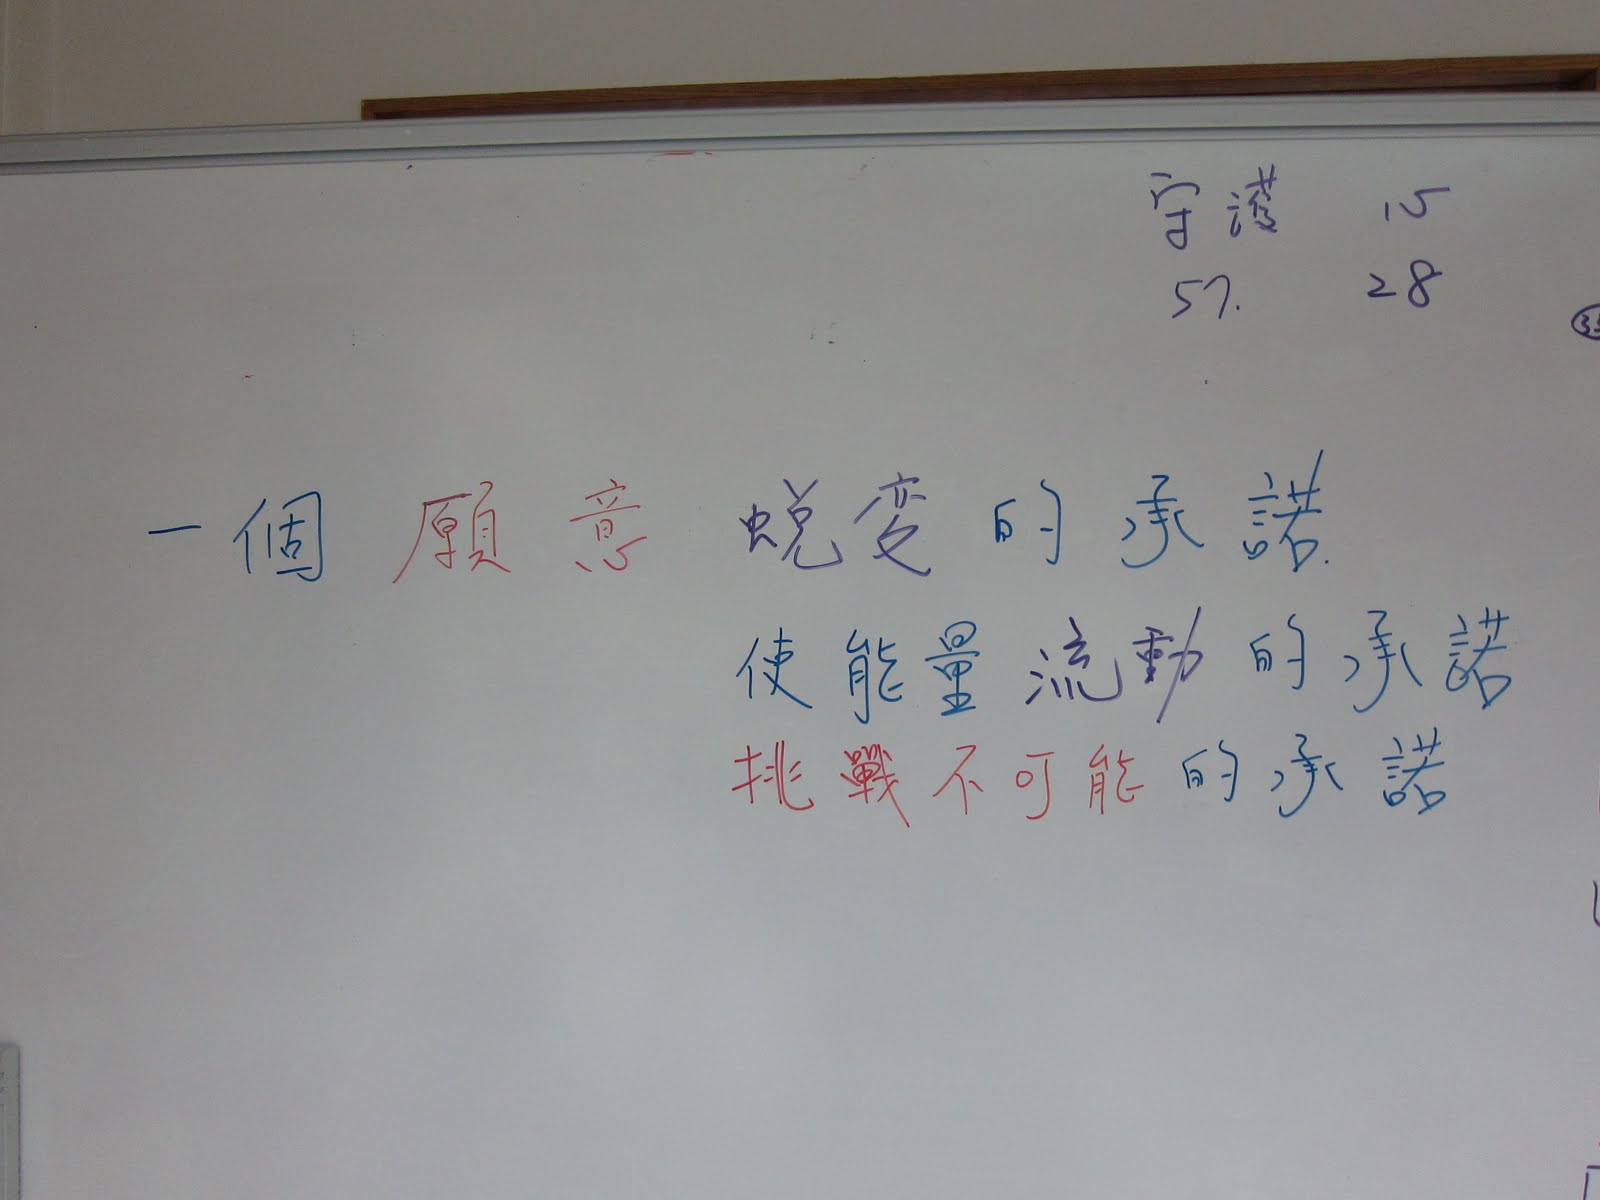 守護 15
57. 28
一個 願意 蛻変的承諾.
使能量流動的承諾
挑戰不可能的承諾